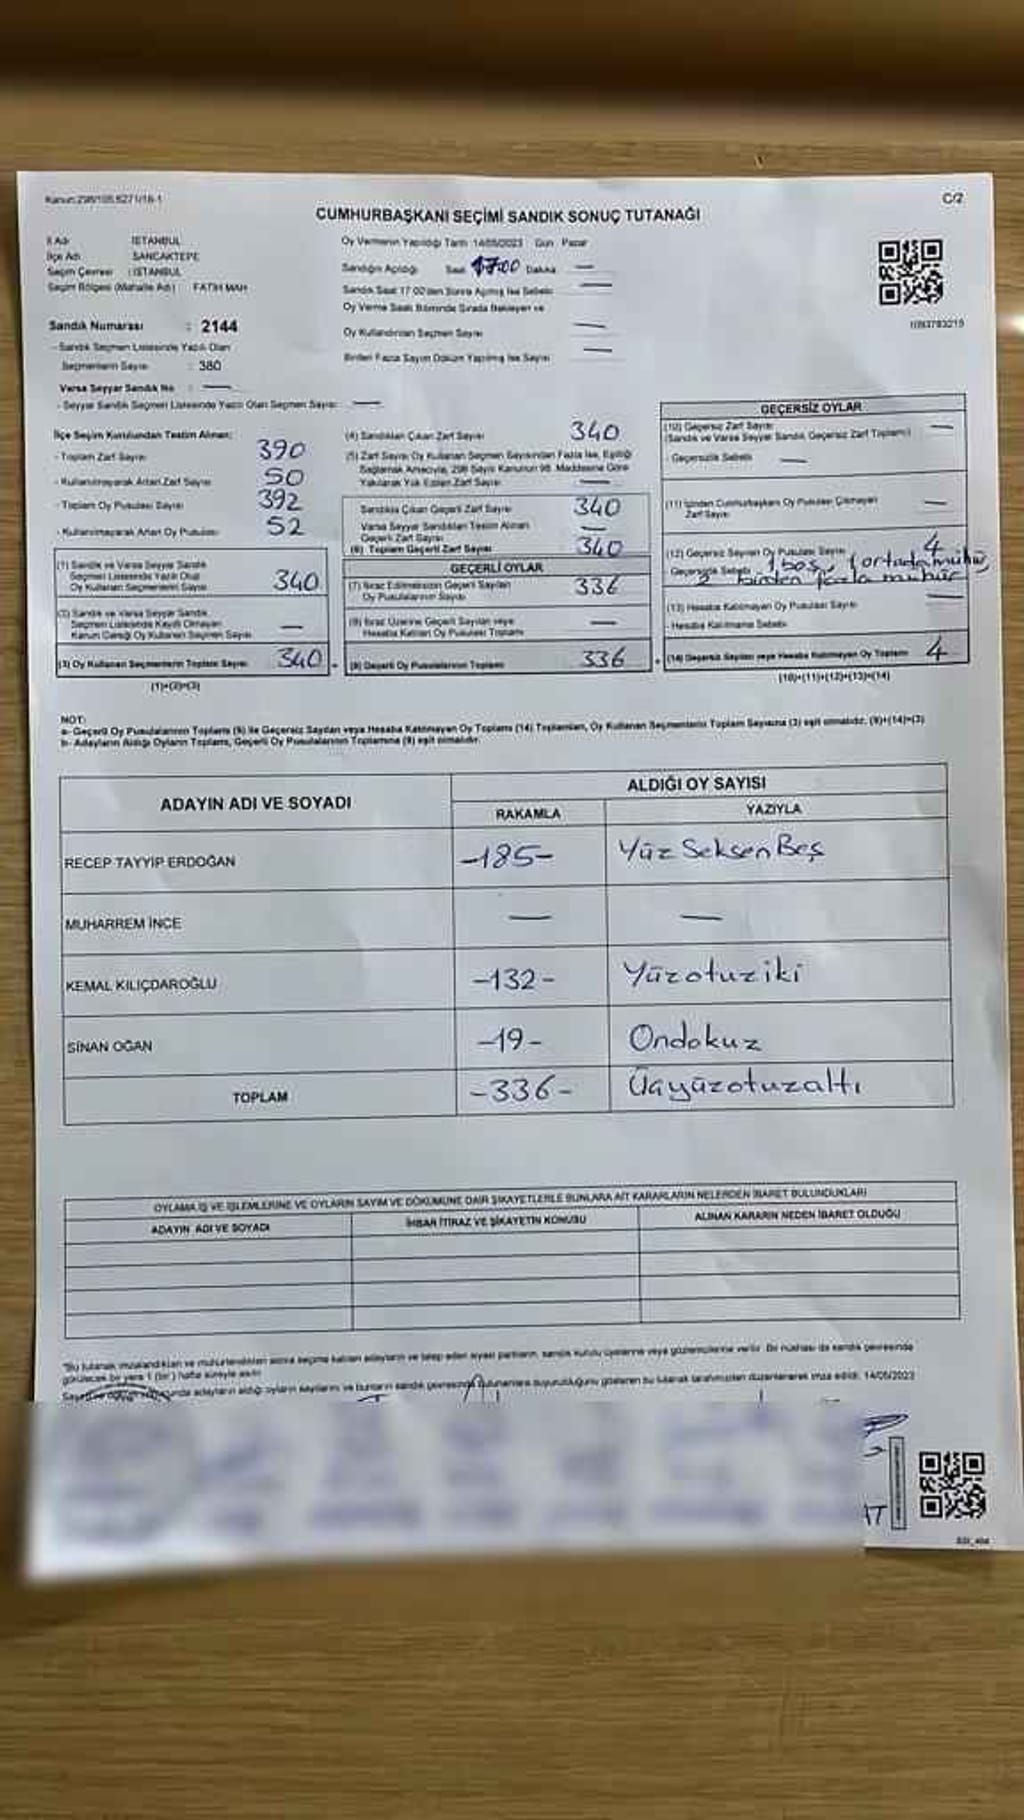 Kanun:298/105,6271/16-1
C/2
CUMHURBAŞKANI SEÇİMİ SANDIK SONUÇ TUTANAĞI
İl Adı : İSTANBUL
İlçe Adı : SANCAKTEPE
Seçim Çevresi : İSTANBUL
Seçim Bölgesi (Mahalle Adı) FATİH MAH
Sandık Numarası : 2144
- Sandık Seçmen Listesinde Yazılı Olan
Seçmenlerin Sayısı : 380
Varsa Seyyar Sandık No : —
- Seyyar Sandık Seçmen Listesinde Yazılı Olan Seçmen Sayısı —
Oy Vermenin Yapıldığı Tarih 14/05/2023 Gün Pazar
Sandığın Açıldığı Saat 17:00 Dakika —
Sandık Saat 17:00'den Sonra Açılmış İse Sebebi —
Oy Verme Saati Bitiminde Sırada Bekleyen ve
Oy Kullandırılan Seçmen Sayısı —
Birden Fazla Sayım Döküm Yapılmış İse Sayısı —
1093783215
İlçe Seçim Kurulundan Teslim Alınan;
- Toplam Zarf Sayısı 390
- Kullanılmayarak Artan Zarf Sayısı 50
- Toplam Oy Pusulası Sayısı 392
- Kullanılmayarak Artan Oy Pusulası 52
(1) Sandık ve Varsa Seyyar Sandık
Seçmen Listesinde Yazılı Olup
Oy Kullanan Seçmenlerin Sayısı 340
(2) Sandık ve Varsa Seyyar Sandık
Seçmen Listesinde Kayıtlı Olmayan
Kanun Gereği Oy Kullanan Seçmen Sayısı —
(3) Oy Kullanan Seçmenlerin Toplam Sayısı 340
(1)+(2)=(3)
(4) Sandıktan Çıkan Zarf Sayısı 340
(5) Zarf Sayısı Oy Kullanan Seçmen Sayısından Fazla İse, Eşitliği
Sağlamak Amacıyla, 298 Sayılı Kanunun 98. Maddesine Göre
Yakılarak Yok Edilen Zarf Sayısı —
Sandıkta Çıkan Geçerli Zarf Sayısı 340
Varsa Seyyar Sandıktan Teslim Alınan
Geçerli Zarf Sayısı —
(6) Toplam Geçerli Zarf Sayısı 340
GEÇERLİ OYLAR
(7) İtiraz Edilmeksizin Geçerli Sayılan
Oy Pusulalarının Sayısı 336
(8) İtiraz Üzerine Geçerli Sayılan veya
Hesaba Katılan Oy Pusulası Toplamı —
(9) Geçerli Oy Pusulalarının Toplamı 336
GEÇERSİZ OYLAR
(10) Geçersiz Zarf Sayısı —
(Sandık ve Varsa Seyyar Sandık Geçersiz Zarf Toplamı)
- Geçersizlik Sebebi —
(11) İçinden Cumhurbaşkanı Oy Pusulası Çıkmayan
Zarf Sayısı —
(12) Geçersiz Sayılan Oy Pusulası Sayısı 4
Geçersizlik Sebebi 1 boş, 1 ortada mühür,
2 birden fazla mühür
(13) Hesaba Katılmayan Oy Pusulası Sayısı —
- Hesaba Katılmama Sebebi
(14) Geçersiz Sayılan veya Hesaba Katılmayan Oy Toplamı 4
(10)+(11)+(12)+(13)=(14)
NOT:
a- Geçerli Oy Pusulalarının Toplamı (9) ile Geçersiz Sayılan veya Hesaba Katılmayan Oy Toplamı (14) Toplamları, Oy Kullanan Seçmenlerin Toplam Sayısına (3) eşit olmalıdır. (9)+(14)=(3)
b- Adayların Aldığı Oyların Toplamı, Geçerli Oy Pusulalarının Toplamına (9) eşit olmalıdır.
ADAYIN ADI VE SOYADI
ALDIĞI OY SAYISI
RAKAMLA YAZIYLA
RECEP TAYYİP ERDOĞAN -185- Yüz Seksen Beş
MUHARREM İNCE — —
KEMAL KILIÇDAROĞLU -132- Yüzotuziki
SİNAN OĞAN -19- Ondokuz
TOPLAM -336- Üçyüzotuzaltı
OYLAMA İŞ VE İŞLEMLERİNE VE OYLARIN SAYIM VE DÖKÜMÜNE DAİR ŞİKAYETLERLE BUNLARA AİT KARARLARIN NELERDEN İBARET BULUNDUKLARI
ADAYIN ADI VE SOYADI İHBAR İTİRAZ VE ŞİKAYETİN KONUSU ALINAN KARARIN NEDEN İBARET OLDUĞU
"Bu tutanak imzalandıktan ve mühürlendikten sonra seçime katılan adayların ve talep eden siyasi partilerin, sandık kurulu üyelerine veya gözlemcilerine verilir. Bir nüshası da sandık çevresinde
görülecek bir yere 1 (bir) hafta süreyle asılır.
adayların aldığı oyların sayılarını ve bunların sandık çevresinde bulunanlara duyurulduğunu gösteren bu tutanak tarafımızdan düzenlenerek imza edildi. 14/05/2023